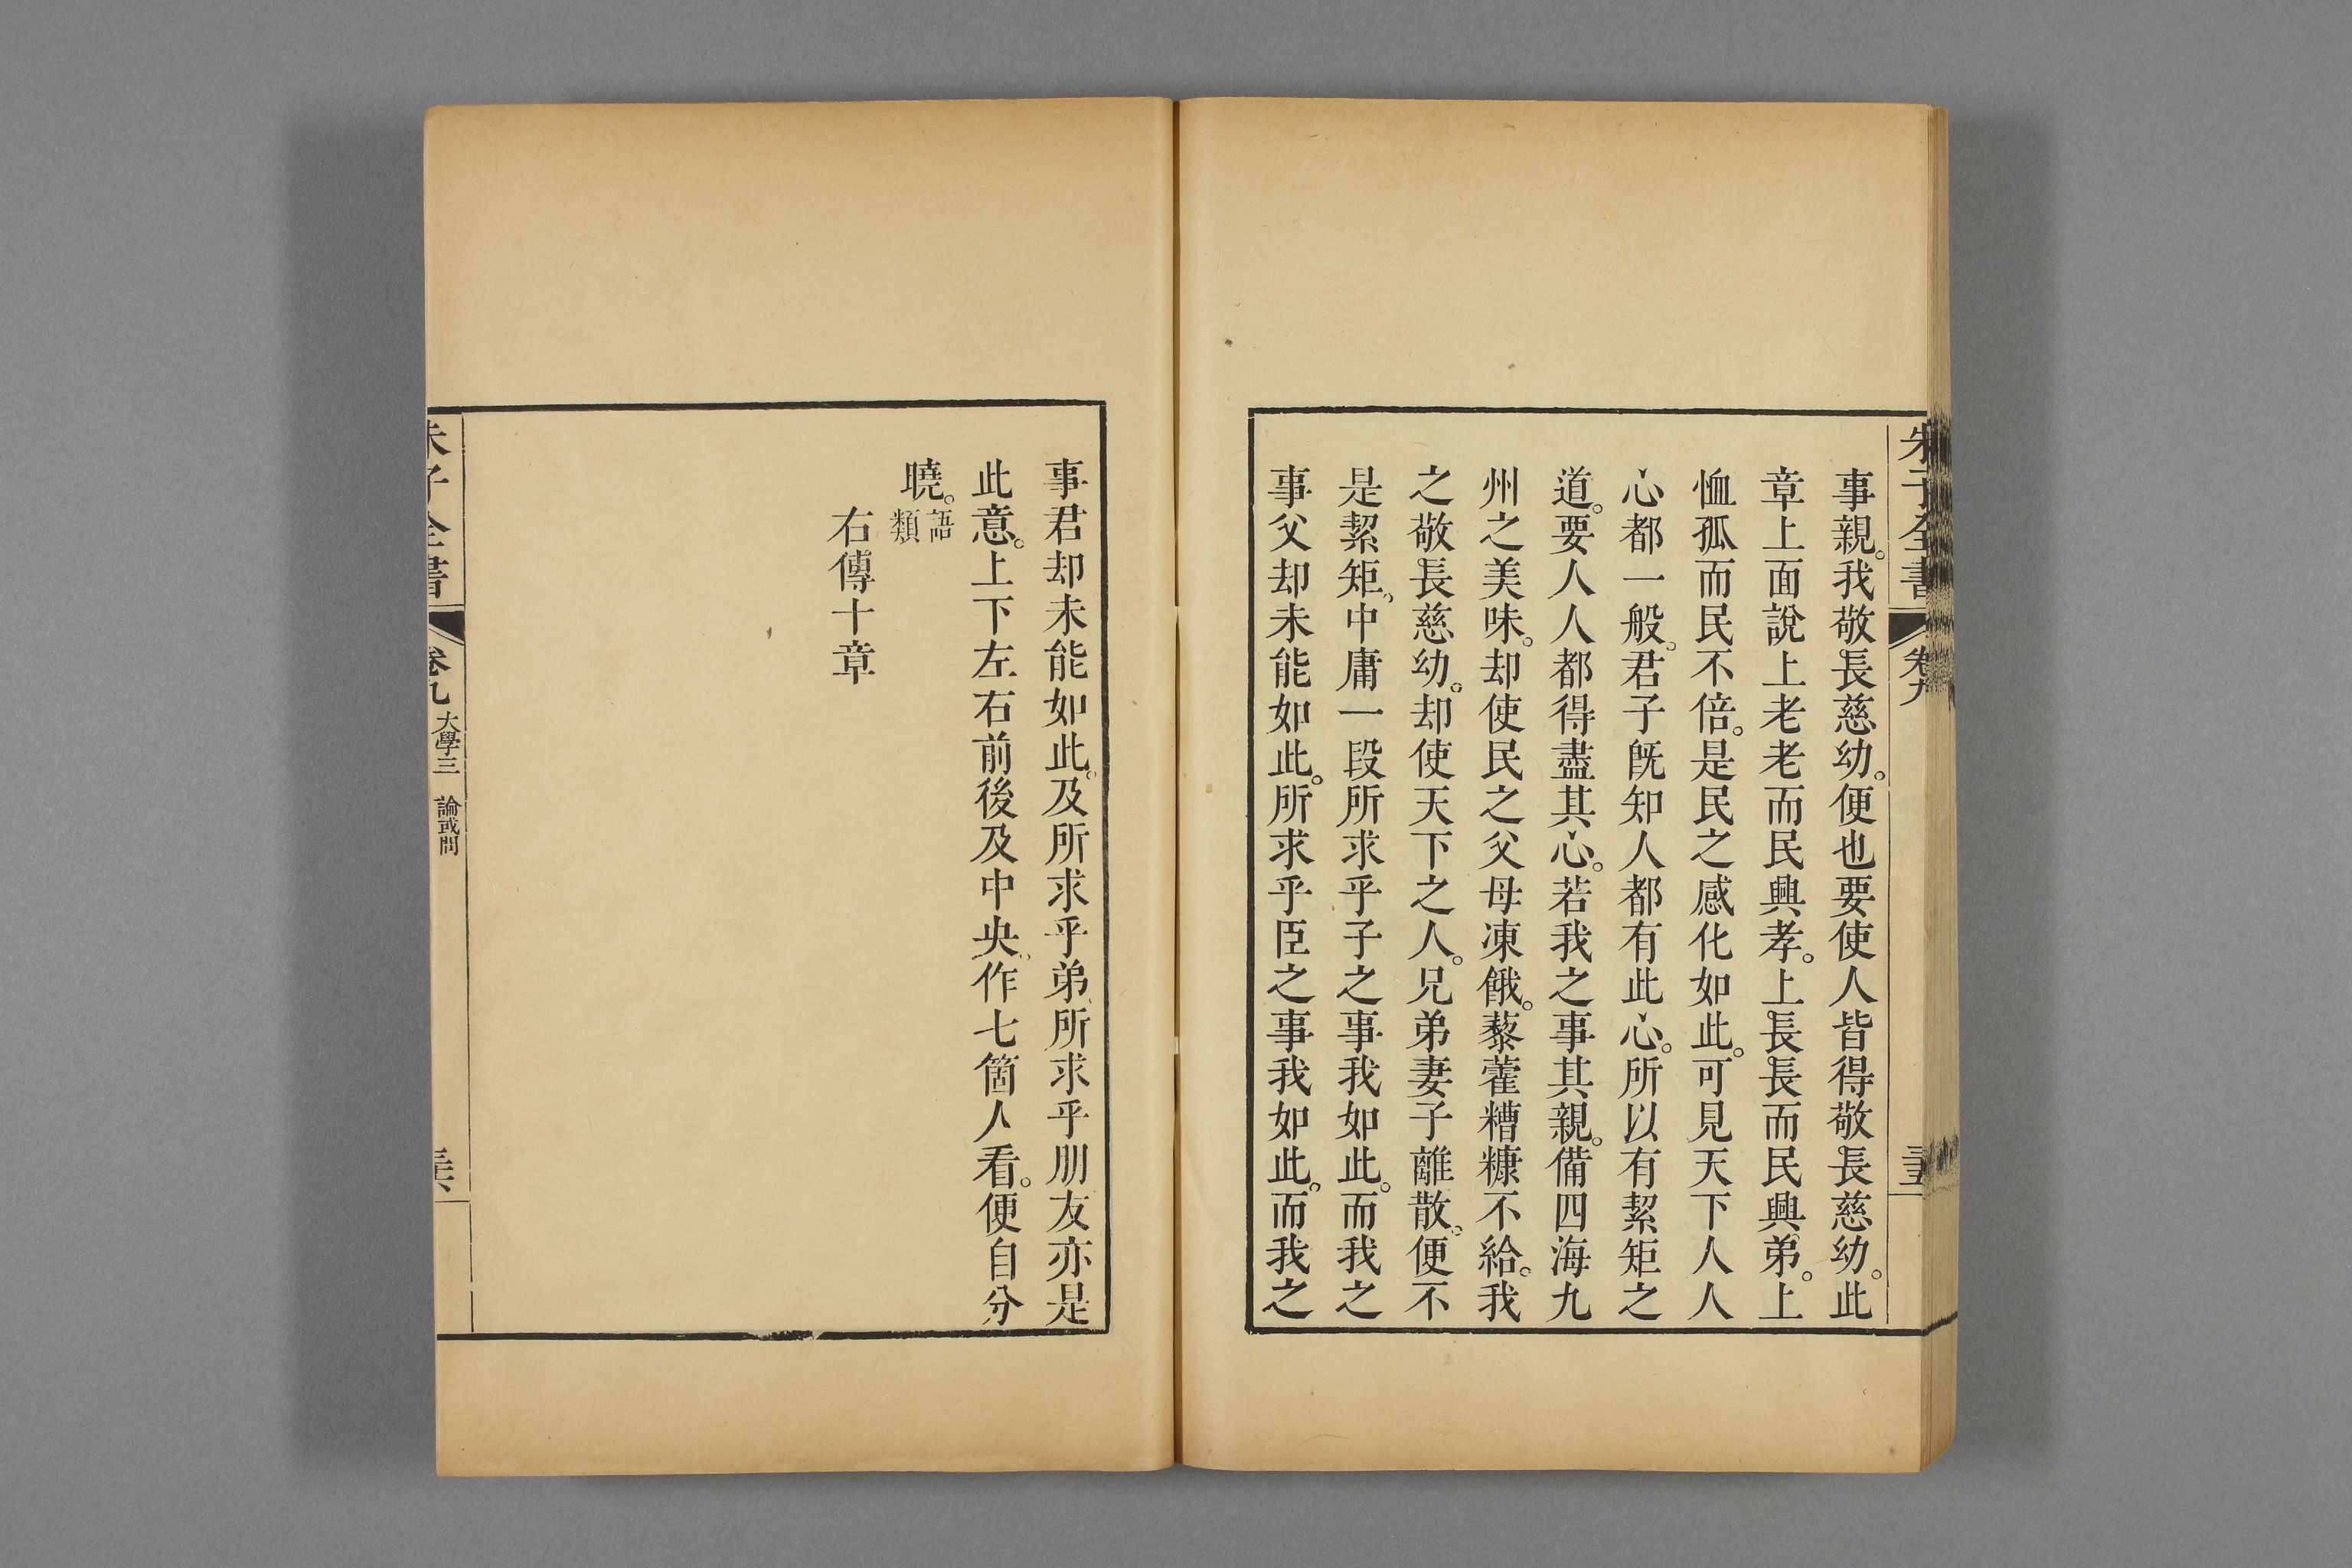 朱子全書 卷九 三五
事親。我敬長慈幼。便也要使人皆得敬長慈幼。此
章上面說上老老而民興孝。上長長而民興弟。上
恤孤而民不倍。是民之感化如此。可見天下人人
心都一般。君子旣知人都有此心。所以有絜矩之
道。要人人都得盡其心。若我之事其親。備四海九
州之美味。却使民之父母凍餓。藜藿糟糠不給。我
之敬長慈幼。却使天下之人。兄弟妻子離散。便不
是絜矩。中庸一段所求乎子之事我如此。而我之
事父却未能如此。所求乎臣之事我如此。而我之
事君却未能如此。及所求乎弟、所求乎朋友亦是
此意。上下左右前後及中央、作七箇人看。便自分
曉。語類
右傳十章
朱子全書 卷九 大學三 論或問 三六